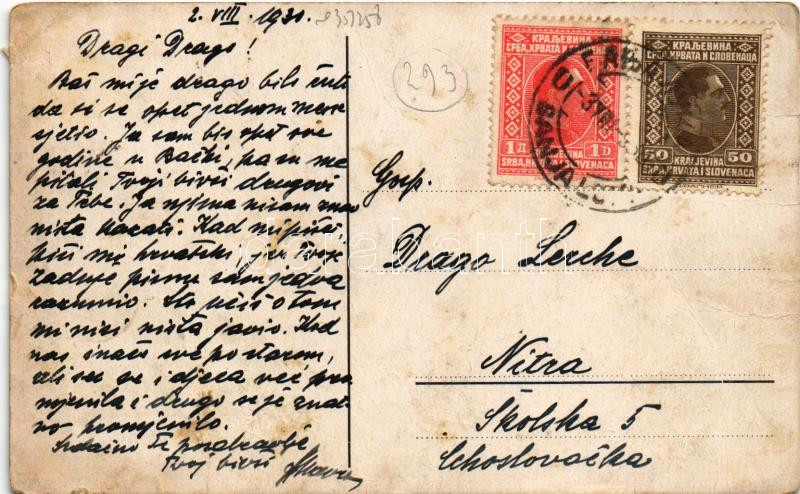 2. VIII. 1930.
Dragi Drago!
Baš mi je drago bilo
da si se opet jednom
sjetio. Ja sam bio opet ove
godine u Bački, pa su me
pitali Tvoji bivši drugovi
za Tebe. Ja njima nisam znao
ništa kazati. Kad mi pišeš,
piši mi hrvatski, jer Tvoje
zadnje pismo sam jedva
razumio. Što
mi nisi ništa javio. Kod
nas inače sve po starom,
ali su se i djeca već
mjenila i drugo se je znat-
no promjenilo.
Srdačno Te pozdravlja
Tvoj bivši
293
КРАЉЕВИНА
СРБА, ХРВАТА И СЛОВЕНАЦА
1Д 1D
КРАЉЕВИНА
СРБА, ХРВАТА И СЛОВЕНАЦА
50 KRALJEVINA 50
SRBA, HRVATA I SLOVENACA
BANJA LUKA
Gosp.
Drago Lerche
Nitra
Školska 5
Čehoslovačka
darabanth